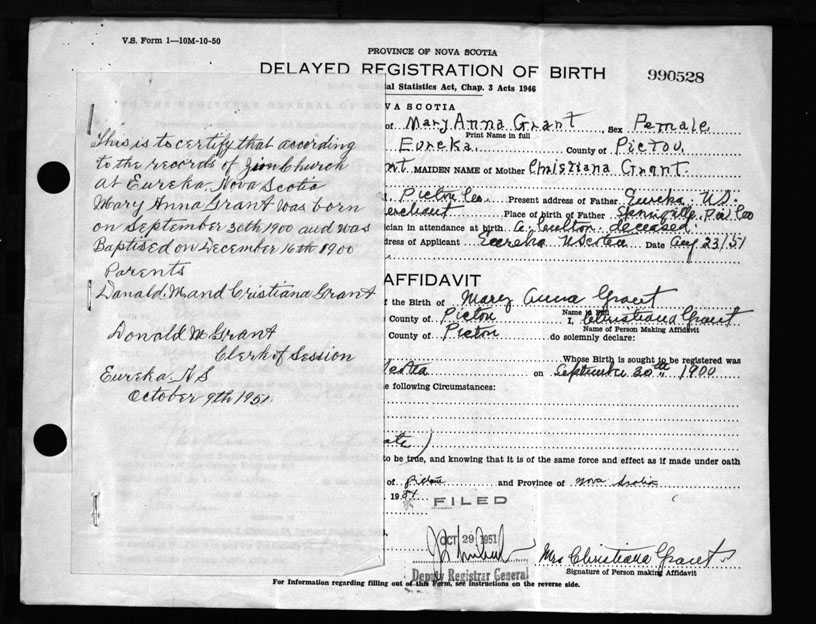 V.S. Form 1—10M-10-50
PROVINCE OF NOVA SCOTIA
DELAYED REGISTRATION OF BIRTH
990528
tal Statistics Act, Chap. 3 Acts 1946
VA SCOTIA
of Mary Anna Grant, Sex Female
Print Name in full
Eureka. County of Pictou.
nt. MAIDEN NAME of Mother Christiana Grant.
Pictou Co. Present address of Father Eureka N.S.
erchant Place of birth of Father Pic Co
cian in attendance at birth deceased.
dress of Applicant Eureka N Scotia Date Aug 23/51
AFFIDAVIT
f the Birth of Mary Anna Grant
Name in full
County of Pictou I, Christiana Grant
Name of Person Making Affidavit
County of Pictou do solemnly declare:
Whose Birth is sought to be registered was
Scotia on September 30th 1900
e following Circumstances:
ate)
to be true, and knowing that it is of the same force and effect as if made under oath
of Pictou and Province of Nova Scotia
1951
FILED
OCT 29 1951
Deputy Registrar General
Mrs Christiana Grant
Signature of Person making Affidavit
For Information regarding filling out of this Form, see instructions on the reverse side.
This is to certify that according
to the records of Zion Church
at Eureka, Nova Scotia
Mary Anna Grant was born
on September 30th 1900 and was
Baptised on December 16th 1900
Parents
Donald M and Cristiana Grant
Donald M Grant
Clerk of Session
Eureka N.S
October 9th 1951